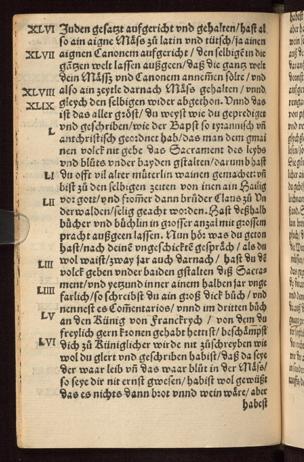 XLVI Juden gesatzt auffgericht vnd gehalten/hast al
so ain aigne Mäss zů latin vnd tütsch/ja ainen
XLVII aignen Canonem auffgericht/den selbigē in die
gātzen welt lassen außgeen/daß die gantz welt
dein Mässz vnd Canonem annemen sölte/vnd
XLVIII also ain zeytle darnach Mäss gehalten/vnnd
XLIX gleych den selbigen wider abgethon. Vnnd das
ist das aller gröst/du weyst wie du geprediget
L vnd geschriben/wie der Bapst so tyrannisch vñ
antichristisch geordnet hab/das man dem gmai
nen volck nit gebe das Sacrament des leybs
vnd blůts vnder bayden gstalten/darumb hast
LI du offt vil alter müterlin wainen gemacht: vñ
bist zů den selbigen zeiten von inen ain Hailig
LII vor gott/vnd from̃er dann brůder Claus zů Vn
derwalden/selig geacht worden. Hast deßhalb
bücher vnd büchlin in grosser anzal mit grossem
pracht außgeen lassen. Nun hör was du geton
hast/nach deinē vngeschicktē gespräch/als du
wol waist/zway jar auch darnach/hast du dē
LIII volck geben vnder baiden gstalten diß Sacra
ment/vnd yetzund inner ainem halben jar vnge
LIIII farlich/so schreibst du ain groß dick bůch/vnd
nennest es Com̃entarios/vnnd im dritten bůch
LV an den Künig von Franckrych/von dem du
freylich gern kronen gehabt hettist/beschämpst
LVI dich zů Küniglicher wirde nit zůschreyben wie
wol du glert vnd geschriben habist/daß da seye
der waar leib vñ das waar blůt in der Mäss/
so seye dir nit ernst gwesen/habist wol gewüßt
das es nichts dann brot vnnd wein wäre/aber
habest